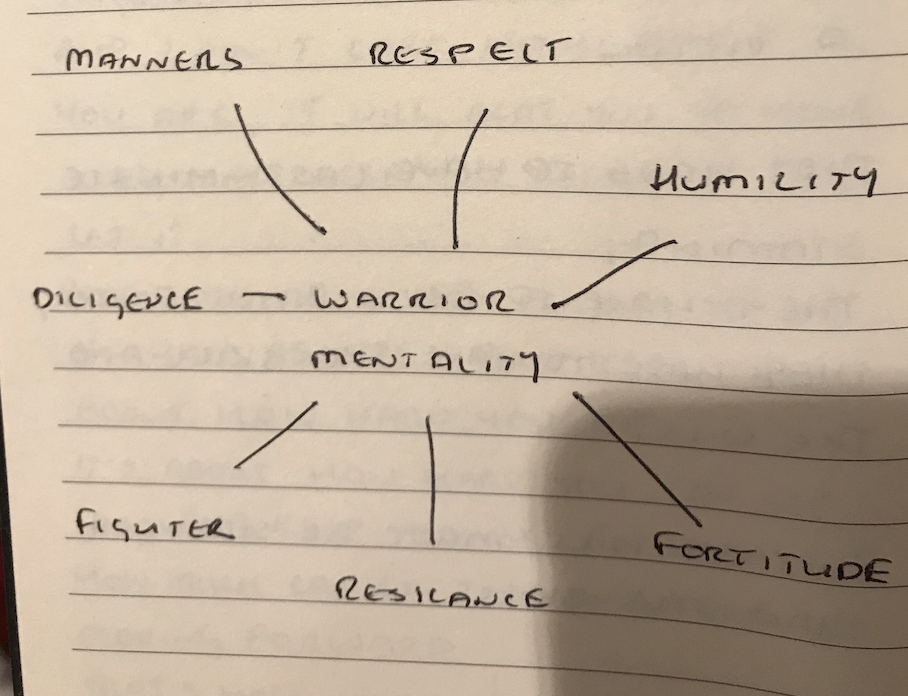 MANNERS RESPECT
HUMILITY
DILIGENCE - WARRIOR
MENTALITY
FIGHTER
FORTITUDE
RESILANCE